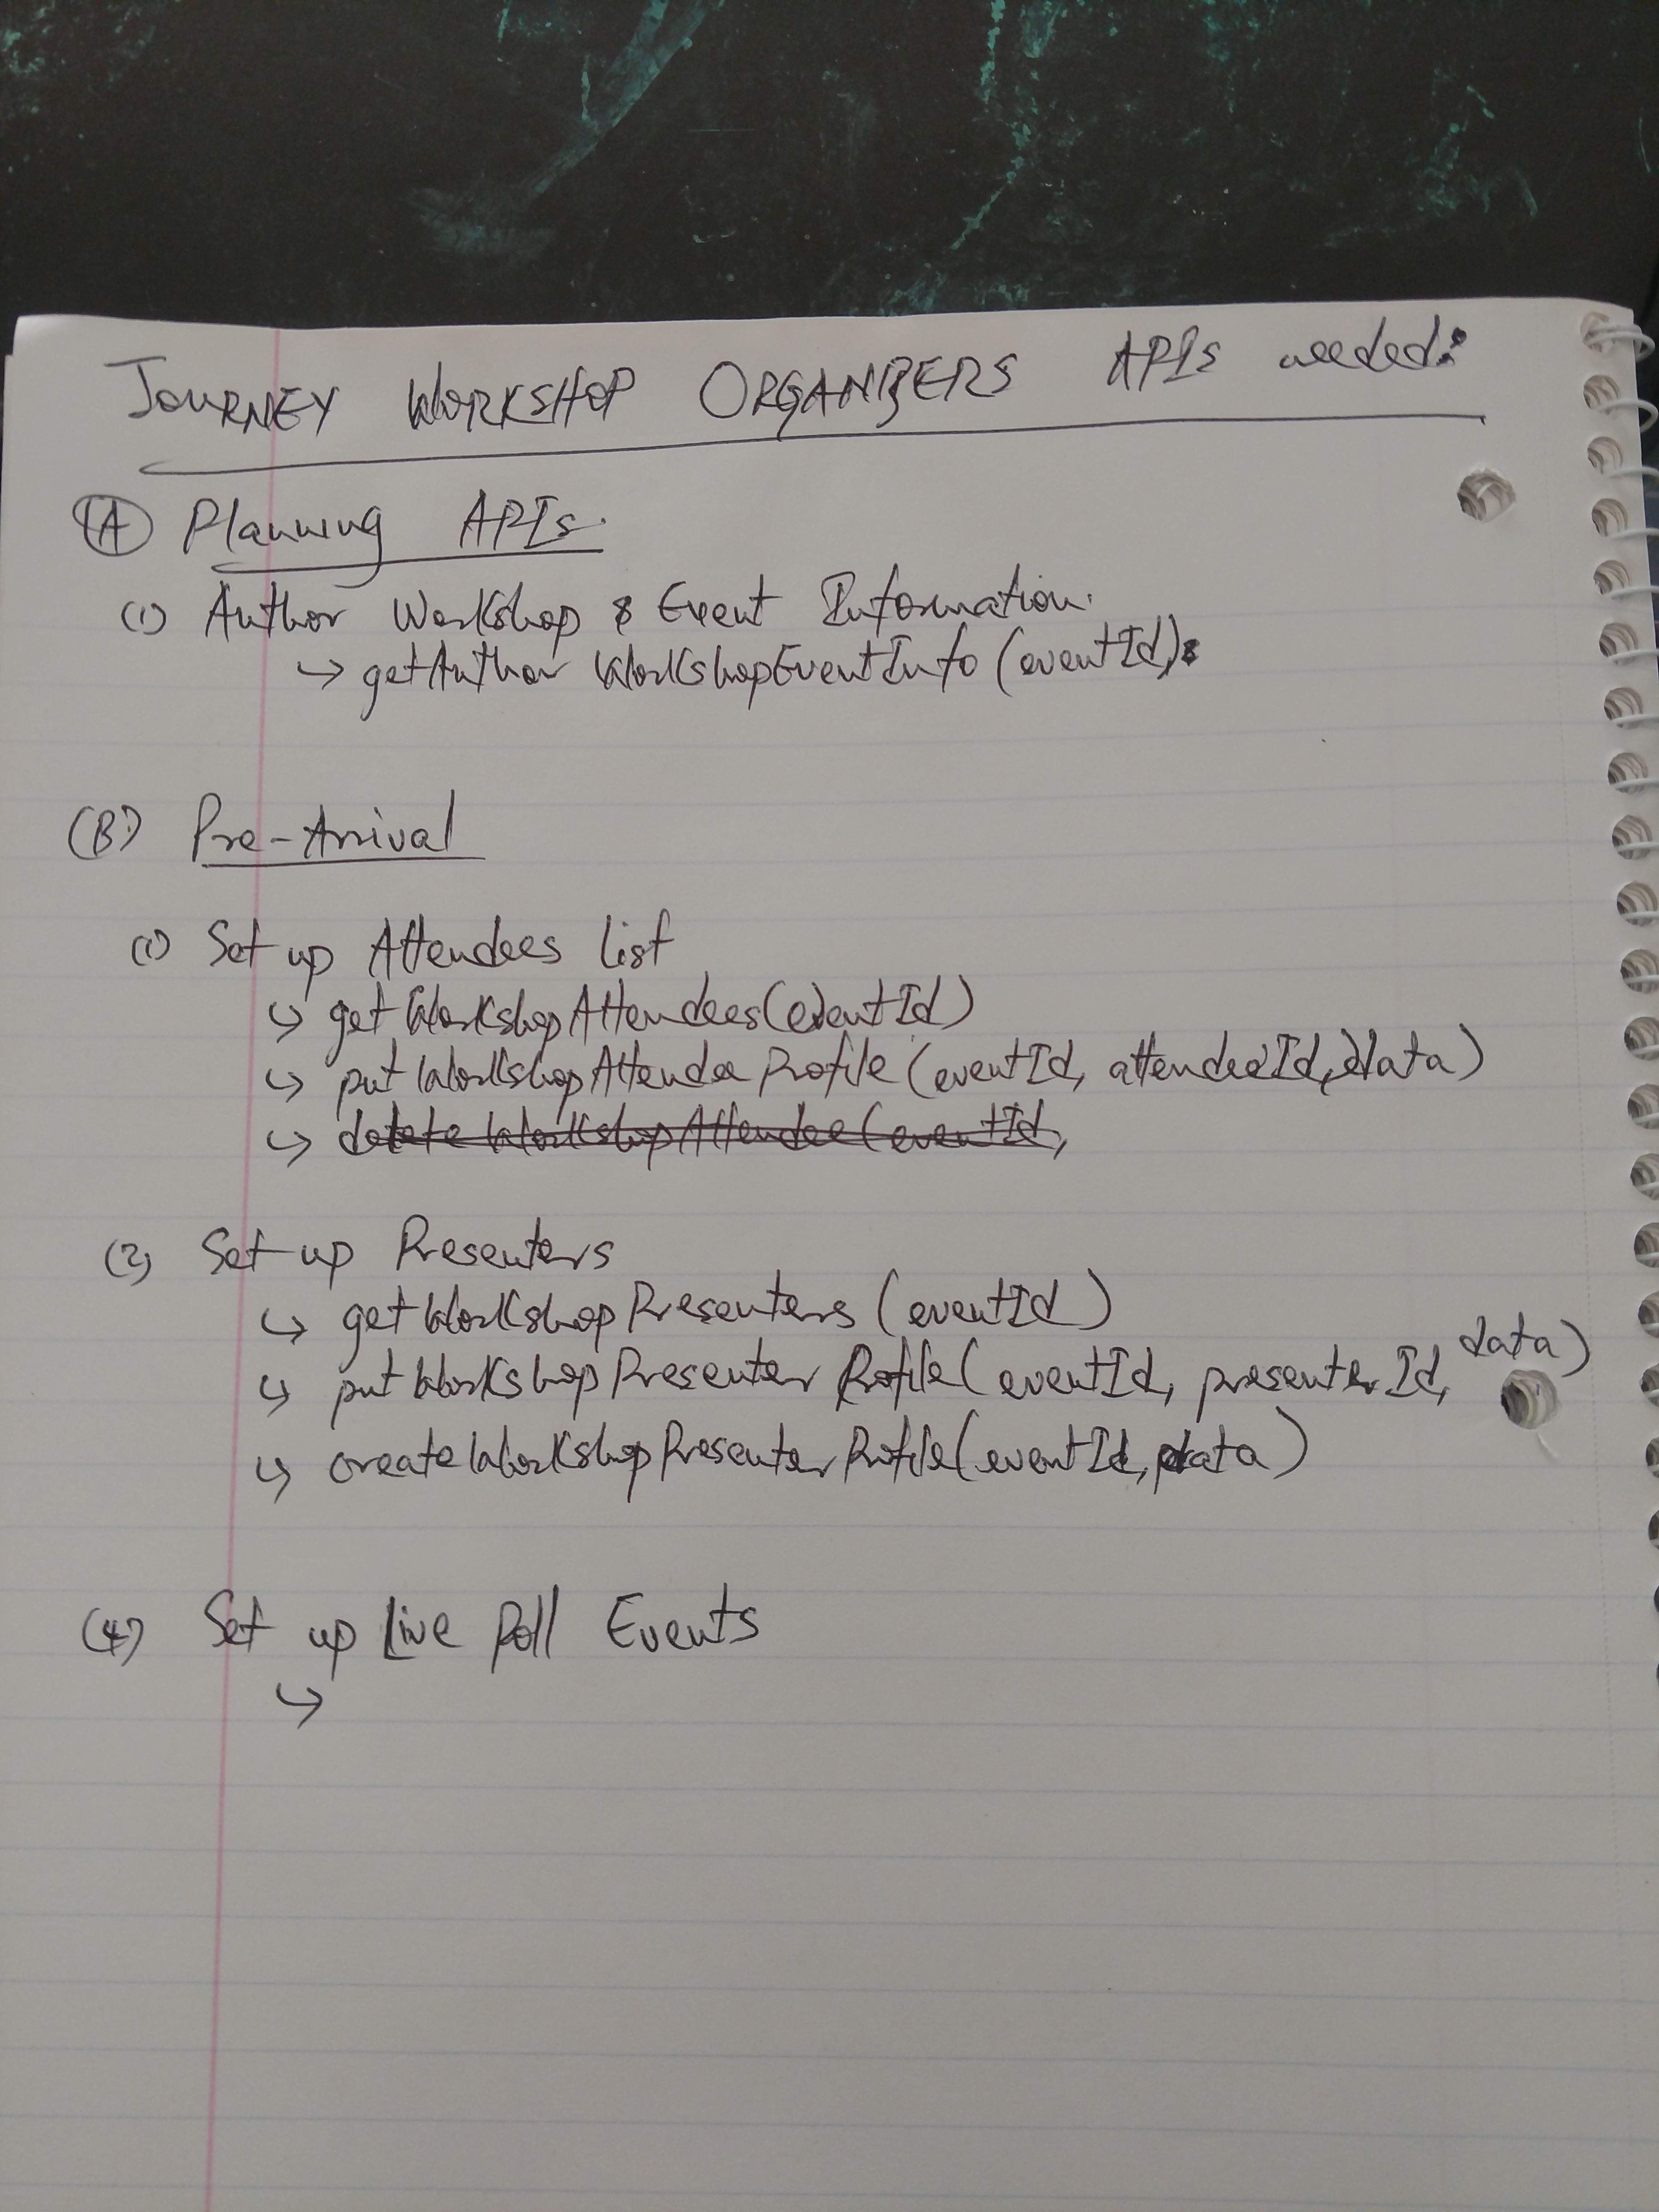 JOURNEY WORKSHOP ORGANIZERS APIs needed:
(A) Planning APIs.
(1) Author Workshop & Event Information.
↪ getAuthor WorkshopEventInfo (eventId)
(B) Pre-Arrival
(1) Set up Attendees List
↪ getWorkshopAttendees(eventId)
↪ putWorkshopAttendeeProfile (eventId, attendeeId, data)
↪ delete WorkshopAttendee (eventId,
(2) Set-up Presenters
↪ getWorkshopPresenters (eventId)
↪ putWorkshopPresenter Profile (eventId, presenterId, data)
↪ createWorkshopPresenterProfile(eventId, data)
(4) Set up Live Poll Events
↪